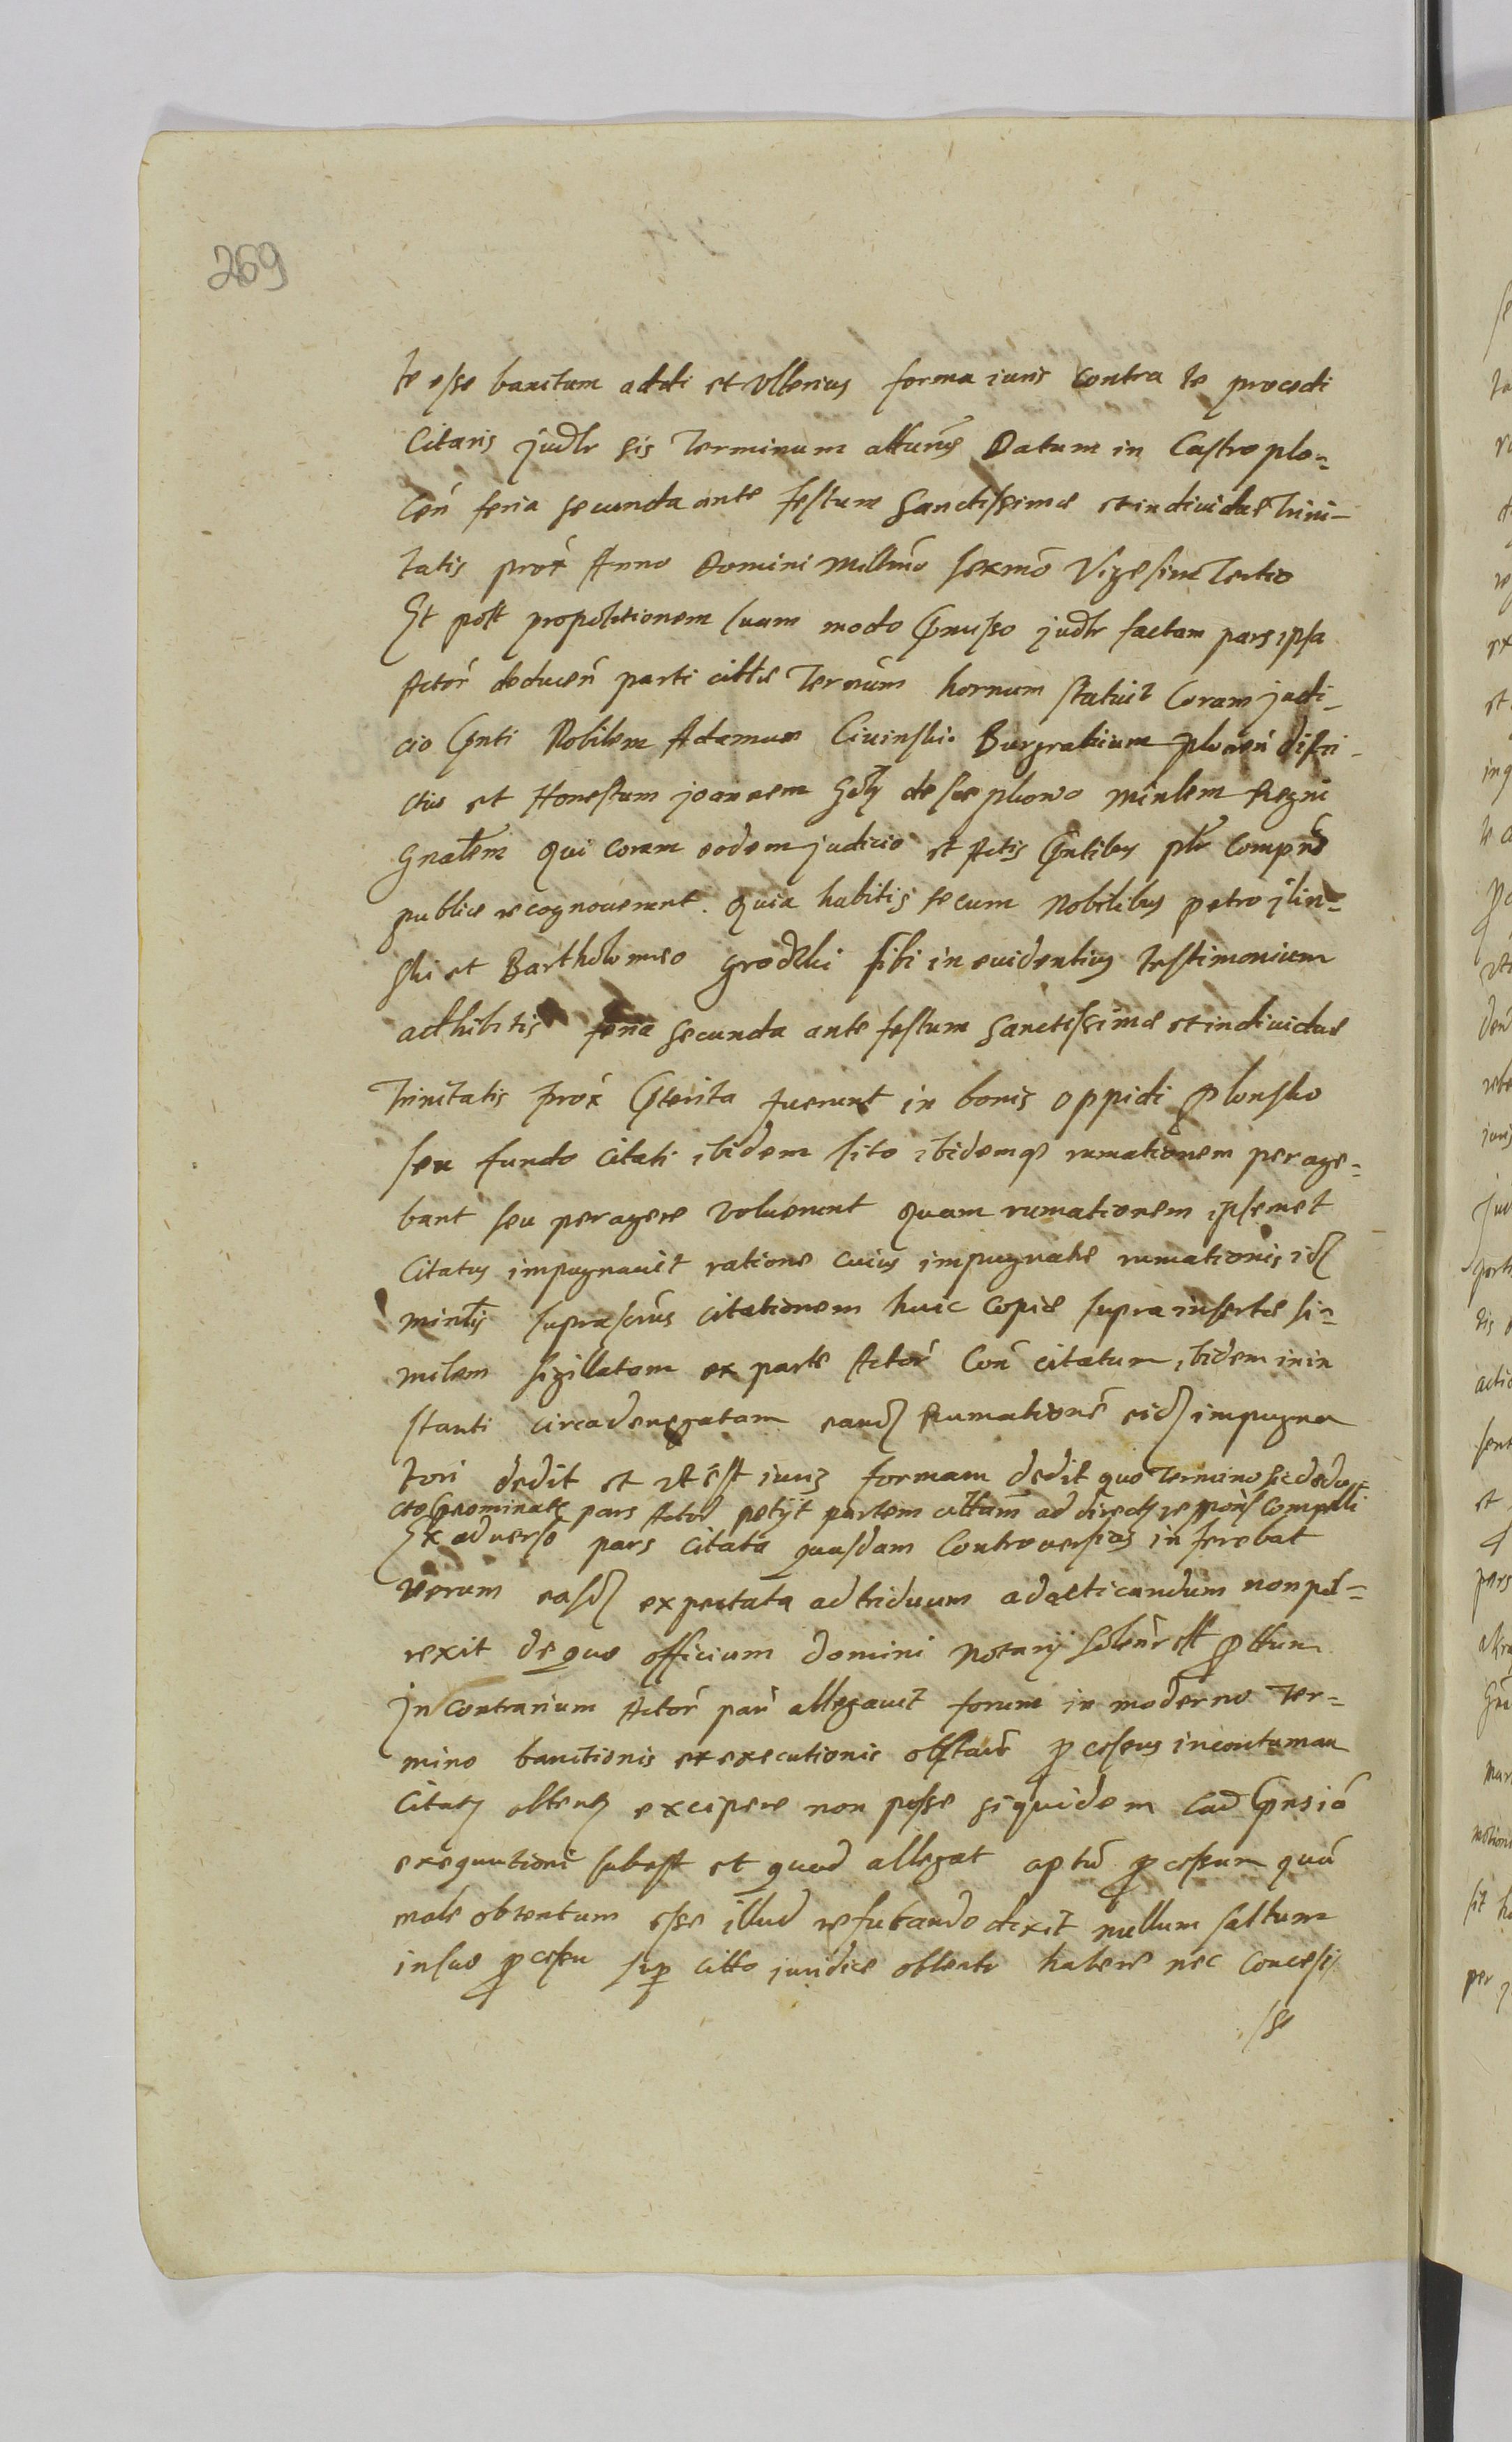 269
te esse banitum addi et ulterius forma iuris contra te procedi
Citaris judtr sis Terminum atturus Datum in Castro plo=
cen feria secunda ante festum Sanctissimæ et individuæ Trini-
tatis prox Anno Domini Millmo sexmo Vigesimo Tertio
Et post propositionem suam modo pmisso judtr factam pars ipsa
Actor deducen parti cittæ Termum hornum statuit Coram judi-
cio pnti Nobilem Adamum Ciuinski Burgrabium plocen distri-
ctus et Honestum joannem de Minlem Regni
Gnalem Qui coram eodem judicio et Actis pntibus pltr Compns
publice recognouerunt. Quia habitis secum Nobilibus petro jlin=
ski et Bartholomeo grodzki sibi in euidentius testimonium
adhibitis feria secunda ante festum Sanctissimæ et individuæ
Trinitatis prox pterita fuerunt in bonis oppidi Plonsko
seu fundo citati ibidem sito ibidemq rumationem perage=
bant seu peragere voluerunt Quam rumationem ipsemet
Citatus impugnauit ratione cuius impugnatæ rumationis id
minlis suprascrius citationem huic copiæ supra insertæ si=
milem sigillatam ex parte Actor Con citatum ibidem in in
stanti circa denegatam eand Rumatione eid impugna
tori dedit et ut est iuris formam dedit quo Termino sic dedu
cto pnominate pars Actor petijt partem cittam ad directe respons compelli
Ex aduerso pars citata quasdam Controuersias inferebat
verum easd expectata ad triduum ad acticandum non por=
rexit de quo officium domini Notarij solenr est pttum
In contrarium Actor pars allegauit forum in moderno Ter=
mino banitionis et executionis obstare pcessus in contumam
Citatus obtentus excipere non posse siquidem
exequutioni subest et quod allegat pcessum qua
male obtentum esse illud refutando dixit nullum saltum
in suo pcessu sup citto juridice obtento habere nec concess
se